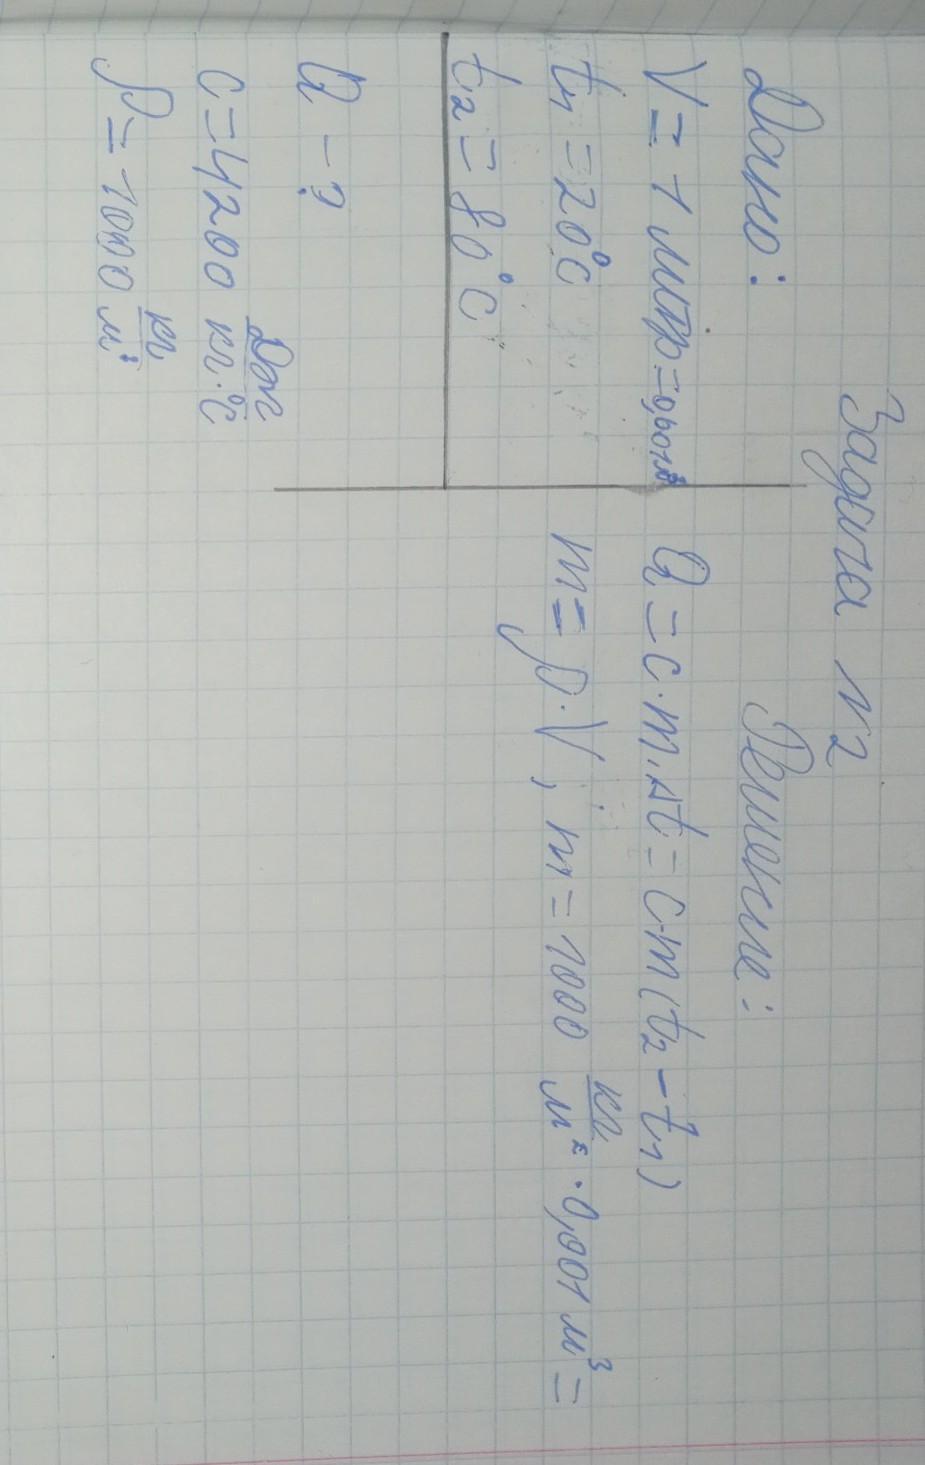 Задача №2
Дано:
V = 1 литр = 0,001м³
t₁ = 20°C
t₂ = 80°C
Q - ?
c = 4200 Дж/кг·°C
ρ = 1000 кг/м³
Решение:
Q = c·m·Δt = c·m(t₂ - t₁)
m = ρ·V; m = 1000 кг/м³ · 0,001 м³ =